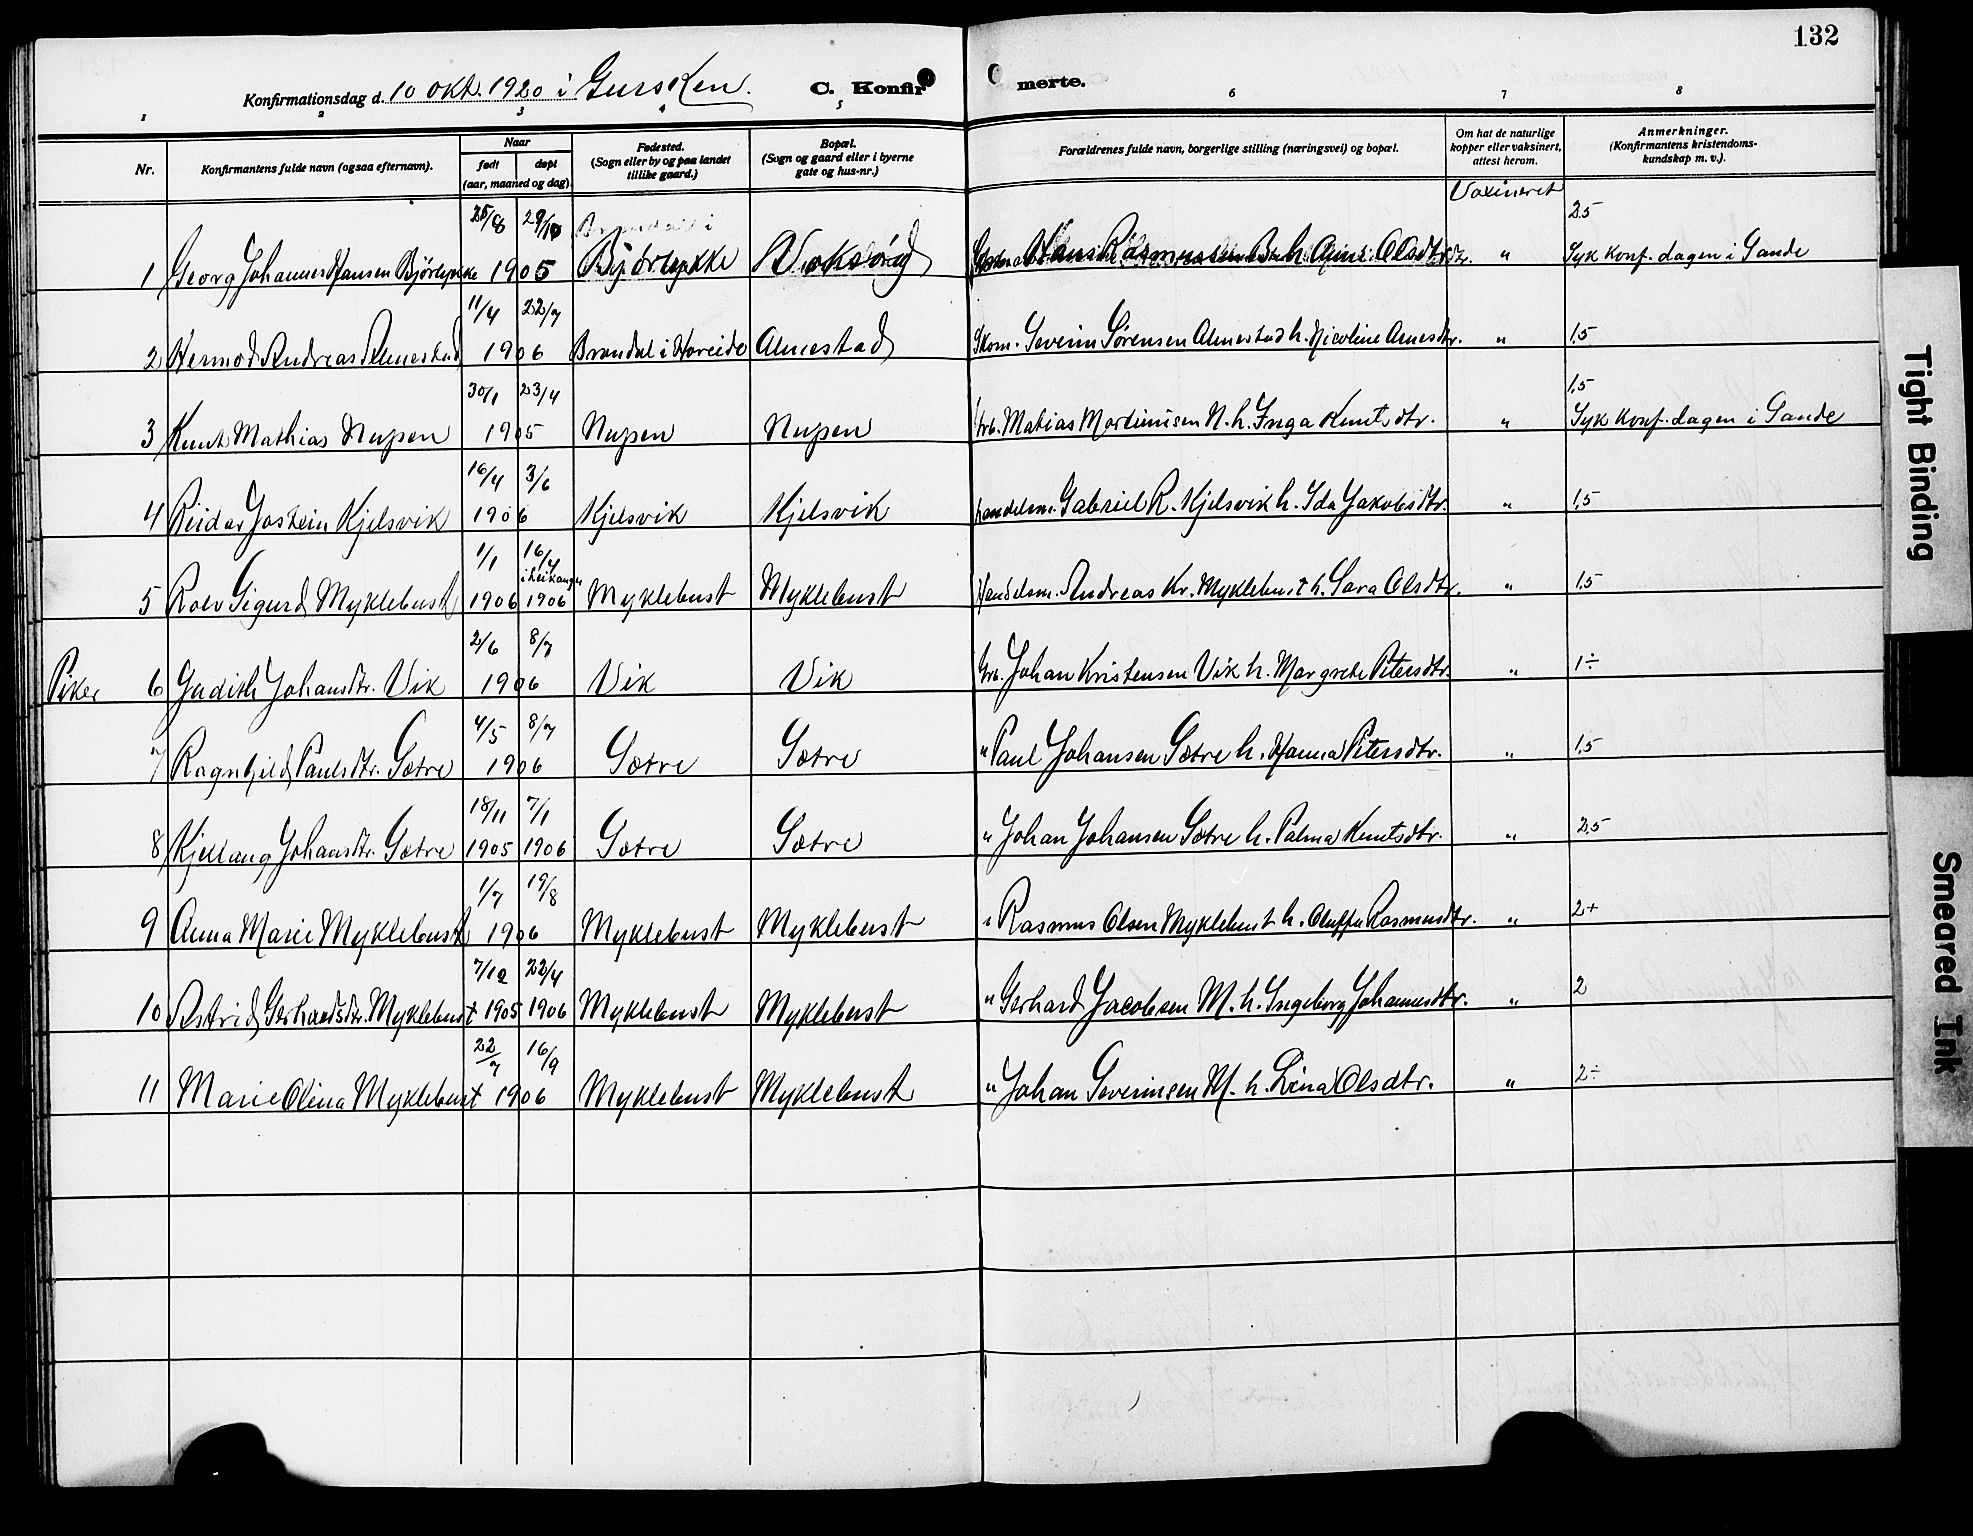 132
Konfirmationsdag d. 10 okt. 1920 i Gursken. C. Konfirmerte.
1 2 3 4 5 6 7 8
Nr. Konfirmantens fulde navn (ogsaa efternavn). Naar født døpt (aar, maaned og dag) Fødested. (Sogn eller by og paa landet tillike gaard.) Bopæl. (Sogn og gaard eller i byerne gate og hus-nr.) Forældrenes fulde navn, borgerlige stilling (næringsvei) og bopæl. Om hat de naturlige kopper eller vaksinert, attest herom. Anmerkninger. (Konfirmantens kristendomskundskap m. v.).
Vaxineret
1 Georg Johannes Hansen Bjørlykke 25/8 29/10 1905 Bjørlykke Voksøyd Hans Rasmussen h. Olsdtr. " 2,5 Syk konf. dagen i Sande
2 Hermod Andreas Almestad 11/4 22/7 1906 Brandal i Hareide Almestad Skom. Severin Sørensen Almestad h. Nicoline Arnesdtr. " 1,5
3 Knut Mathias Nupen 30/1 23/4 1905 Nupen Nupen Grb. Matias Martinusen N. h. Inga Knutsdtr. " 1,5 Syk konf. dagen i Sande
4 Reidar Jostein Kjelsvik 16/4 3/6 1906 Kjelsvik Kjelsvik Handelsm. Gabriel R. Kjelsvik h. Ida Jakobsdtr. " 1,5
5 Rolv Sigurd Myklebust 1/1 1906 16/4 i Leikanger 1906 Myklebust Myklebust Handelsm. Andreas Kr. Myklebust h. Sara Olsdtr. " 1,5
Piker 6 Gudith Johansdtr. Vik 2/6 8/7 1906 Vik Vik Grb. Johan Kristensen Vik h. Margrete Petersdtr. " 1÷
7 Ragnhild Paulsdtr. Sætre 4/5 8/7 1906 Sætre Sætre " Paul Johansen Sætre h. Hanna Petersdtr. " 1,5
8 Kjellaug Johansdtr. Sætre 18/11 1905 7/1 1906 Sætre Sætre " Johan Johansen Sætre h. Palma Knutsdtr. " 2,5
9 Anna Marie Myklebust 1/7 19/8 1906 Myklebust Myklebust " Rasmus Olsen Myklebust h. Oluffa Rasmusdtr. " 2+
10 Astrid Gerhardsdtr. Myklebust 7/12 1905 22/4 1906 Myklebust Myklebust " Gerhard Jacobsen M. h. Ingeborg Johannesdtr. " 2
11 Marie Olina Myklebust 22/7 16/9 1906 Myklebust Myklebust " Johan Severinsen M. h. Lina Olsdtr. " 2÷
Tight Binding
Smeared Ink